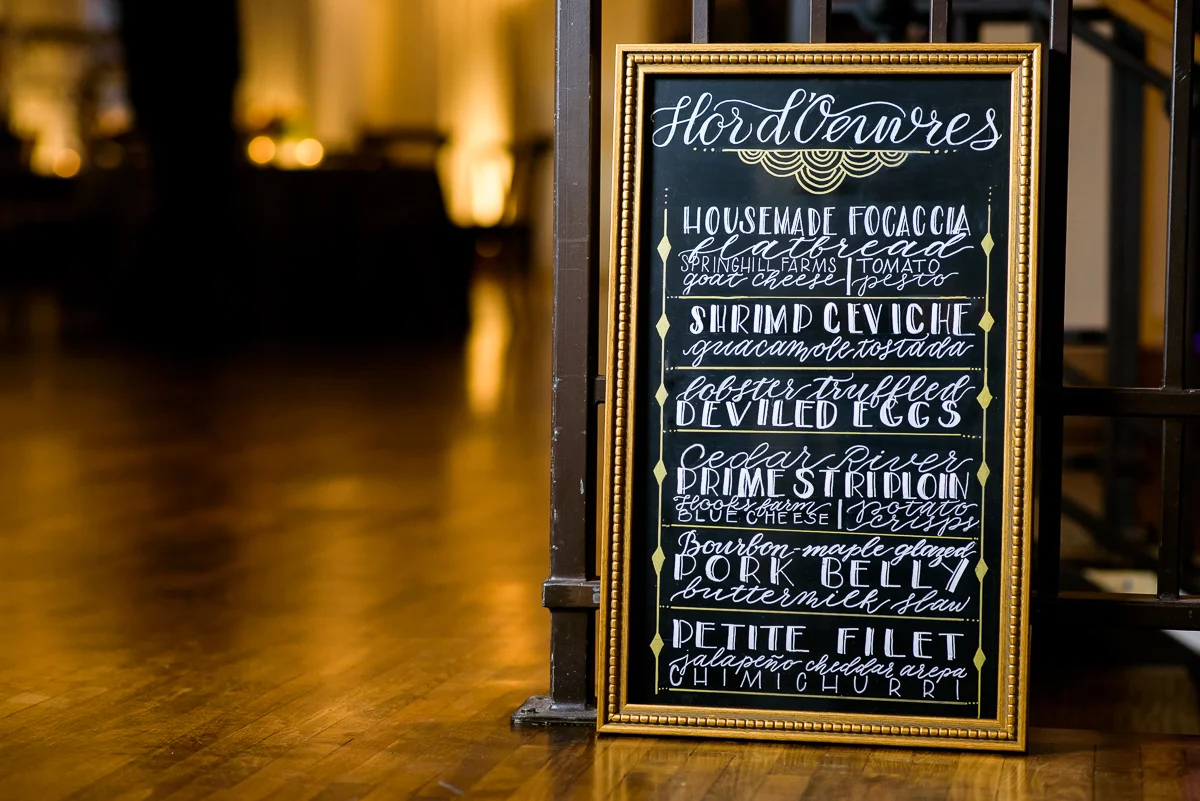 Hor d'Oeuvres
HOUSEMADE FOCACCIA
flatbread
SPRINGHILL FARMS | TOMATO
goat cheese | pesto
SHRIMP CEVICHE
guacamole, tostada
lobster truffled
DEVILED EGGS
Cedar River
PRIME STRIPLOIN
Hooks farm | potato
BLUE CHEESE | crisps
Bourbon-maple glazed
PORK BELLY
buttermilk slaw
PETITE FILET
jalapeño cheddar arepa
CHIMICHURRI